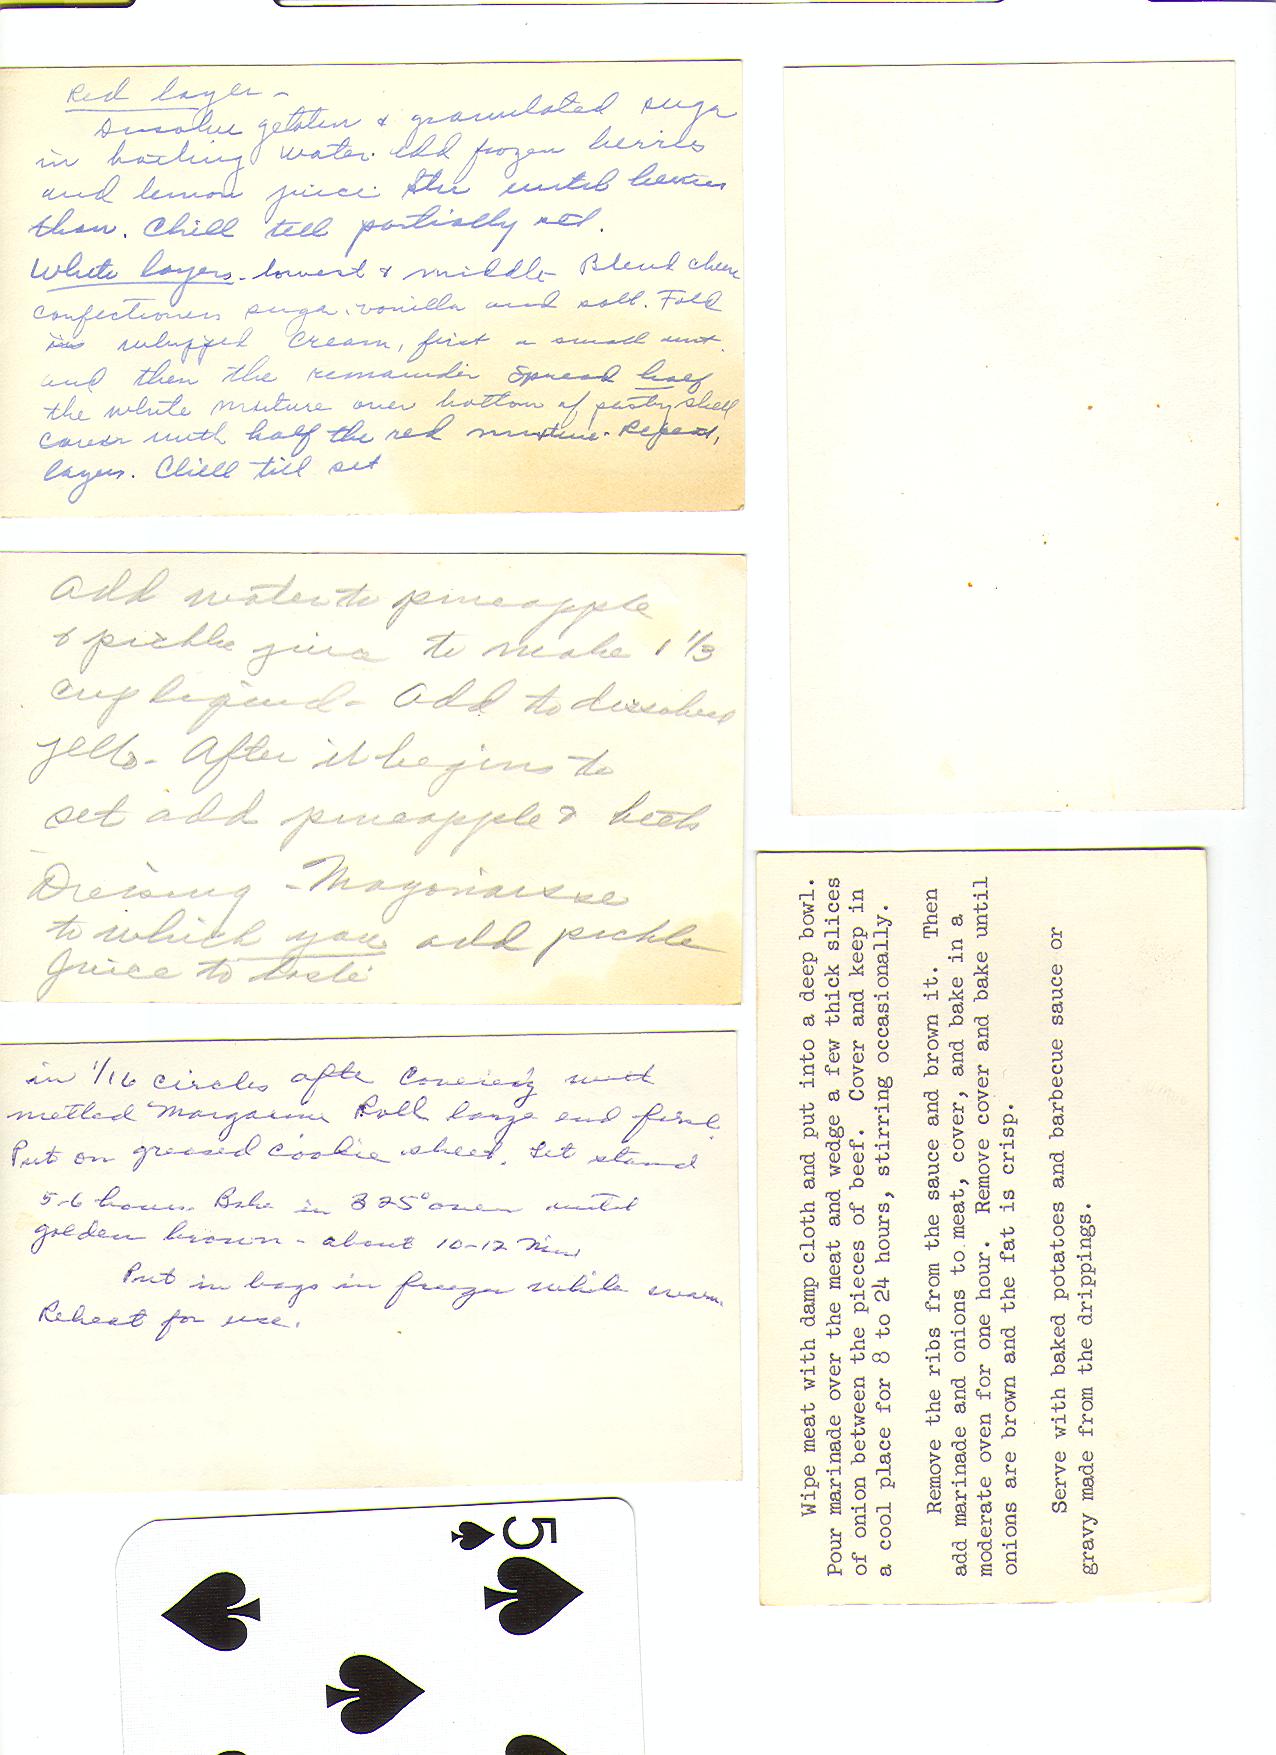 Red layer -
Dissolve gelatin & granulated suga
in boiling water. Add frozen berries
and lemon juice. Stir until berries
thaw. Chill till partially set.
White layers - lowest & middle Blend cheese
confectioners sugar, vanilla and salt. Fold
in whipped cream, first a small amt.
and then the remainder Spread half
the white mixture over bottom of pastry shell
cover with half the red mixture. Repeat,
layers. Chill till set
Add water to pineapple
& pickle juice to make 1 1/3
cup liquid - Add to dissolved
jello - After it begins to
set add pineapple & beets
Dressing - Mayonaisse
to which you add pickle
juice to taste
in 1/16 circles afte covering with
metled Margarine Roll large end first.
Put on greased cookie sheet. Let stand
5-6 hours. Bake in 325° oven until
golden brown - about 10-12 Min
Put in bags in freezer while warm.
Reheat for use.
Wipe meat with damp cloth and put into a deep bowl.
Pour marinade over the meat and wedge a few thick slices
of onion between the pieces of beef. Cover and keep in
a cool place for 8 to 24 hours, stirring occasionally.
Remove the ribs from the sauce and brown it. Then
add marinade and onions to meat, cover, and bake in a
moderate oven for one hour. Remove cover and bake until
onions are brown and the fat is crisp.
Serve with baked potatoes and barbecue sauce or
gravy made from the drippings.
5